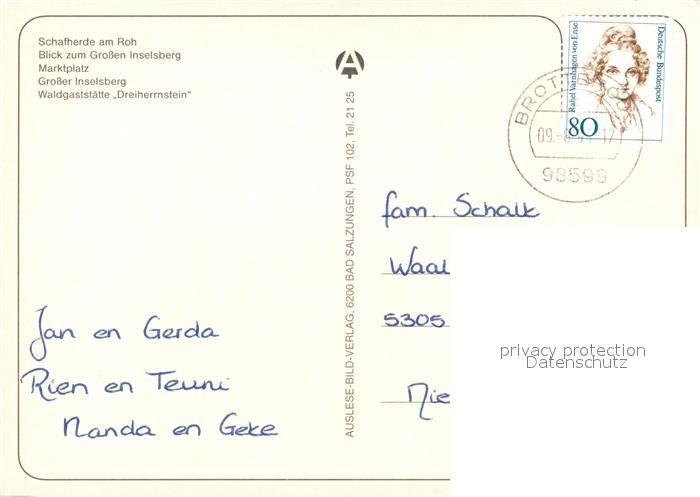 Schafherde am Roh
Blick zum Großen Inselsberg
Marktplatz
Großer Inselsberg
Waldgaststätte „Dreiherrnstein“
AUSLESE-BILD-VERLAG, 6200 BAD SALZUNGEN, PSF 102, Tel. 21 25
Rahel Varnhagen von Ense
Deutsche Bundespost
80
98599
fam. Schalk
Waal
5305
Nie
Jan en Gerda
Rien en Teuni
Nanda en Geke
privacy protection
Datenschutz